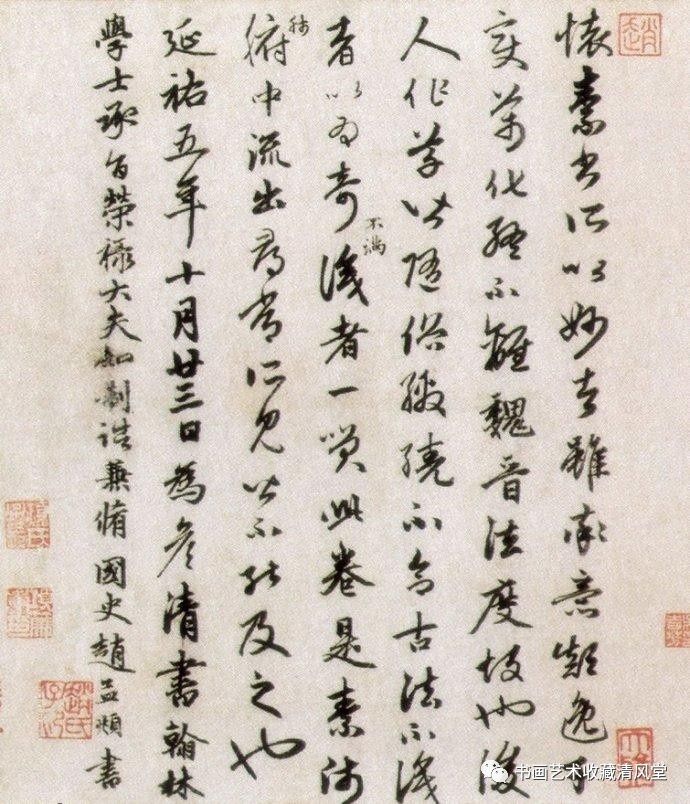 懷素書所以妙者雖率意顛逸千
變萬化終不離魏晉法度故也後
人作草皆隨俗繳繞不合古法不識
者以為奇不滿識者一笑此卷是素師
肺腑中流出尋常所見皆不能及之也
延祐五年十月廿三日為彥清書翰林
學士承旨榮祿大夫知制誥兼脩國史趙孟頫書
趙氏子昂
书画艺术收藏清风堂